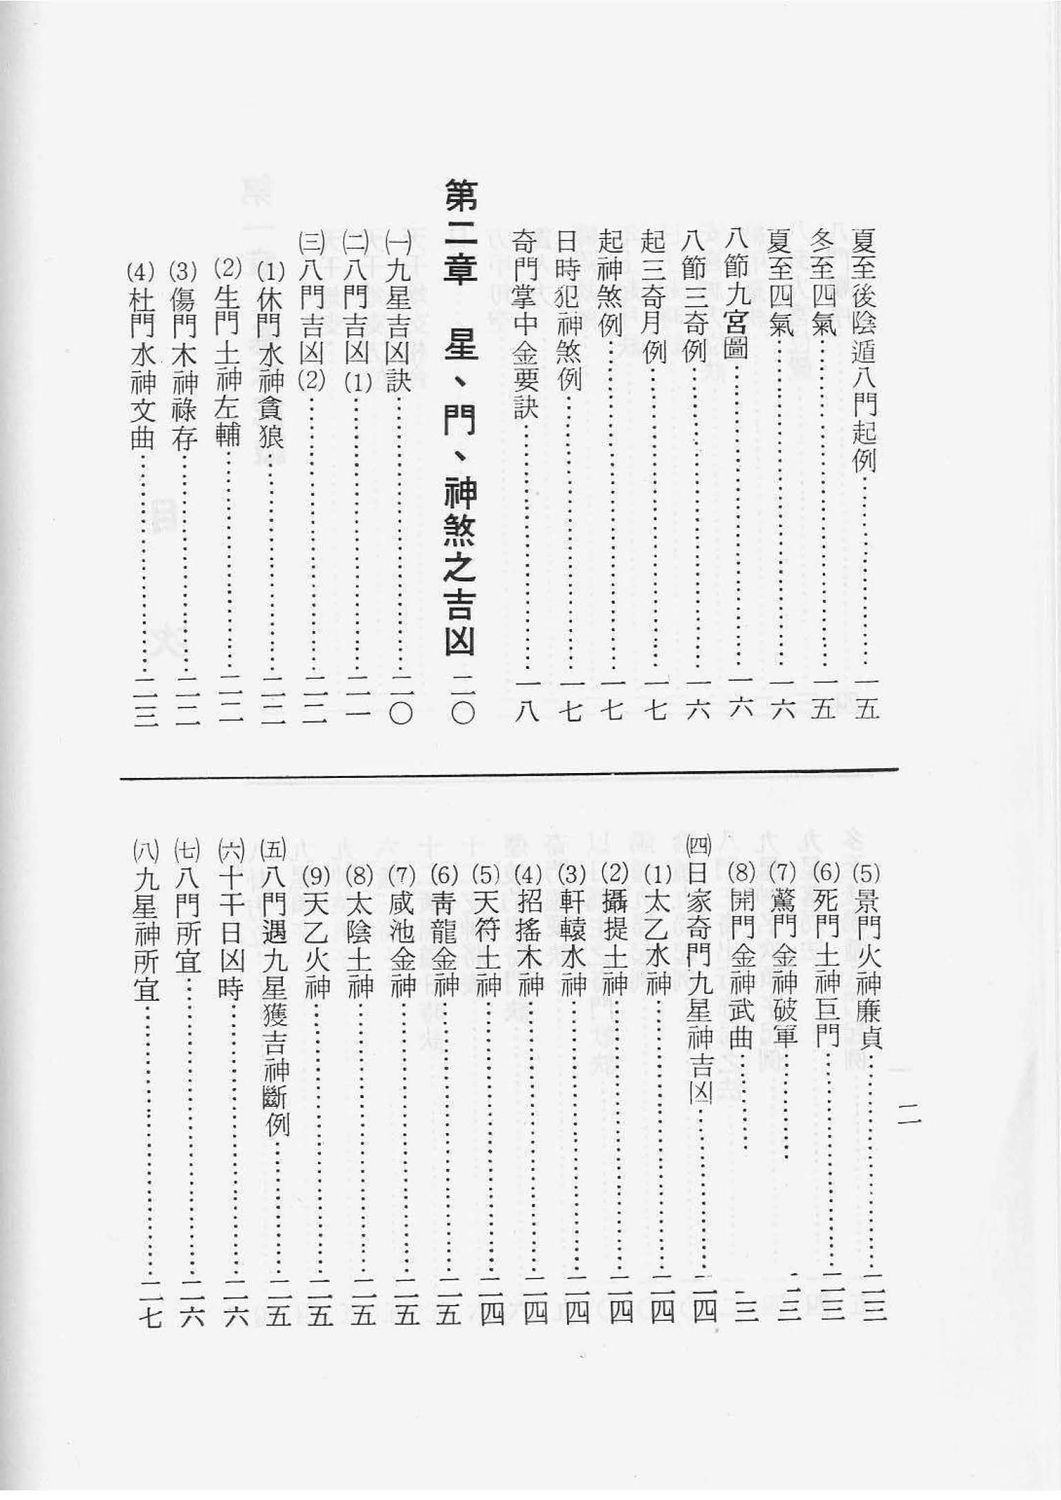 夏至後陰遁八門起例……一五
冬至四氣……一五
夏至四氣……一六
八節九宮圖……一六
八節三奇例……一六
起三奇月例……一七
起神煞例……一七
日時犯神煞例……一七
奇門掌中金要訣……一八
第二章　星、門、神煞之吉凶　二〇
㈠九星吉凶訣……二〇
㈡八門吉凶(1)……二一
㈢八門吉凶(2)……二二
(1)休門水神貪狼……二二
(2)生門土神左輔……二二
(3)傷門木神祿存……二二
(4)杜門水神文曲……二三
二
(5)景門火神廉貞……二三
(6)死門土神巨門……二三
(7)驚門金神破軍……二三
(8)開門金神武曲……二三
㈣日家奇門九星神吉凶……二四
(1)太乙水神……二四
(2)攝提土神……二四
(3)軒轅水神……二四
(4)招搖木神……二四
(5)天符土神……二四
(6)靑龍金神……二五
(7)咸池金神……二五
(8)太陰土神……二五
(9)天乙火神……二五
㈤八門遇九星獲吉神斷例……二五
㈥十干日凶時……二六
㈦八門所宜……二六
㈧九星神所宜……二七